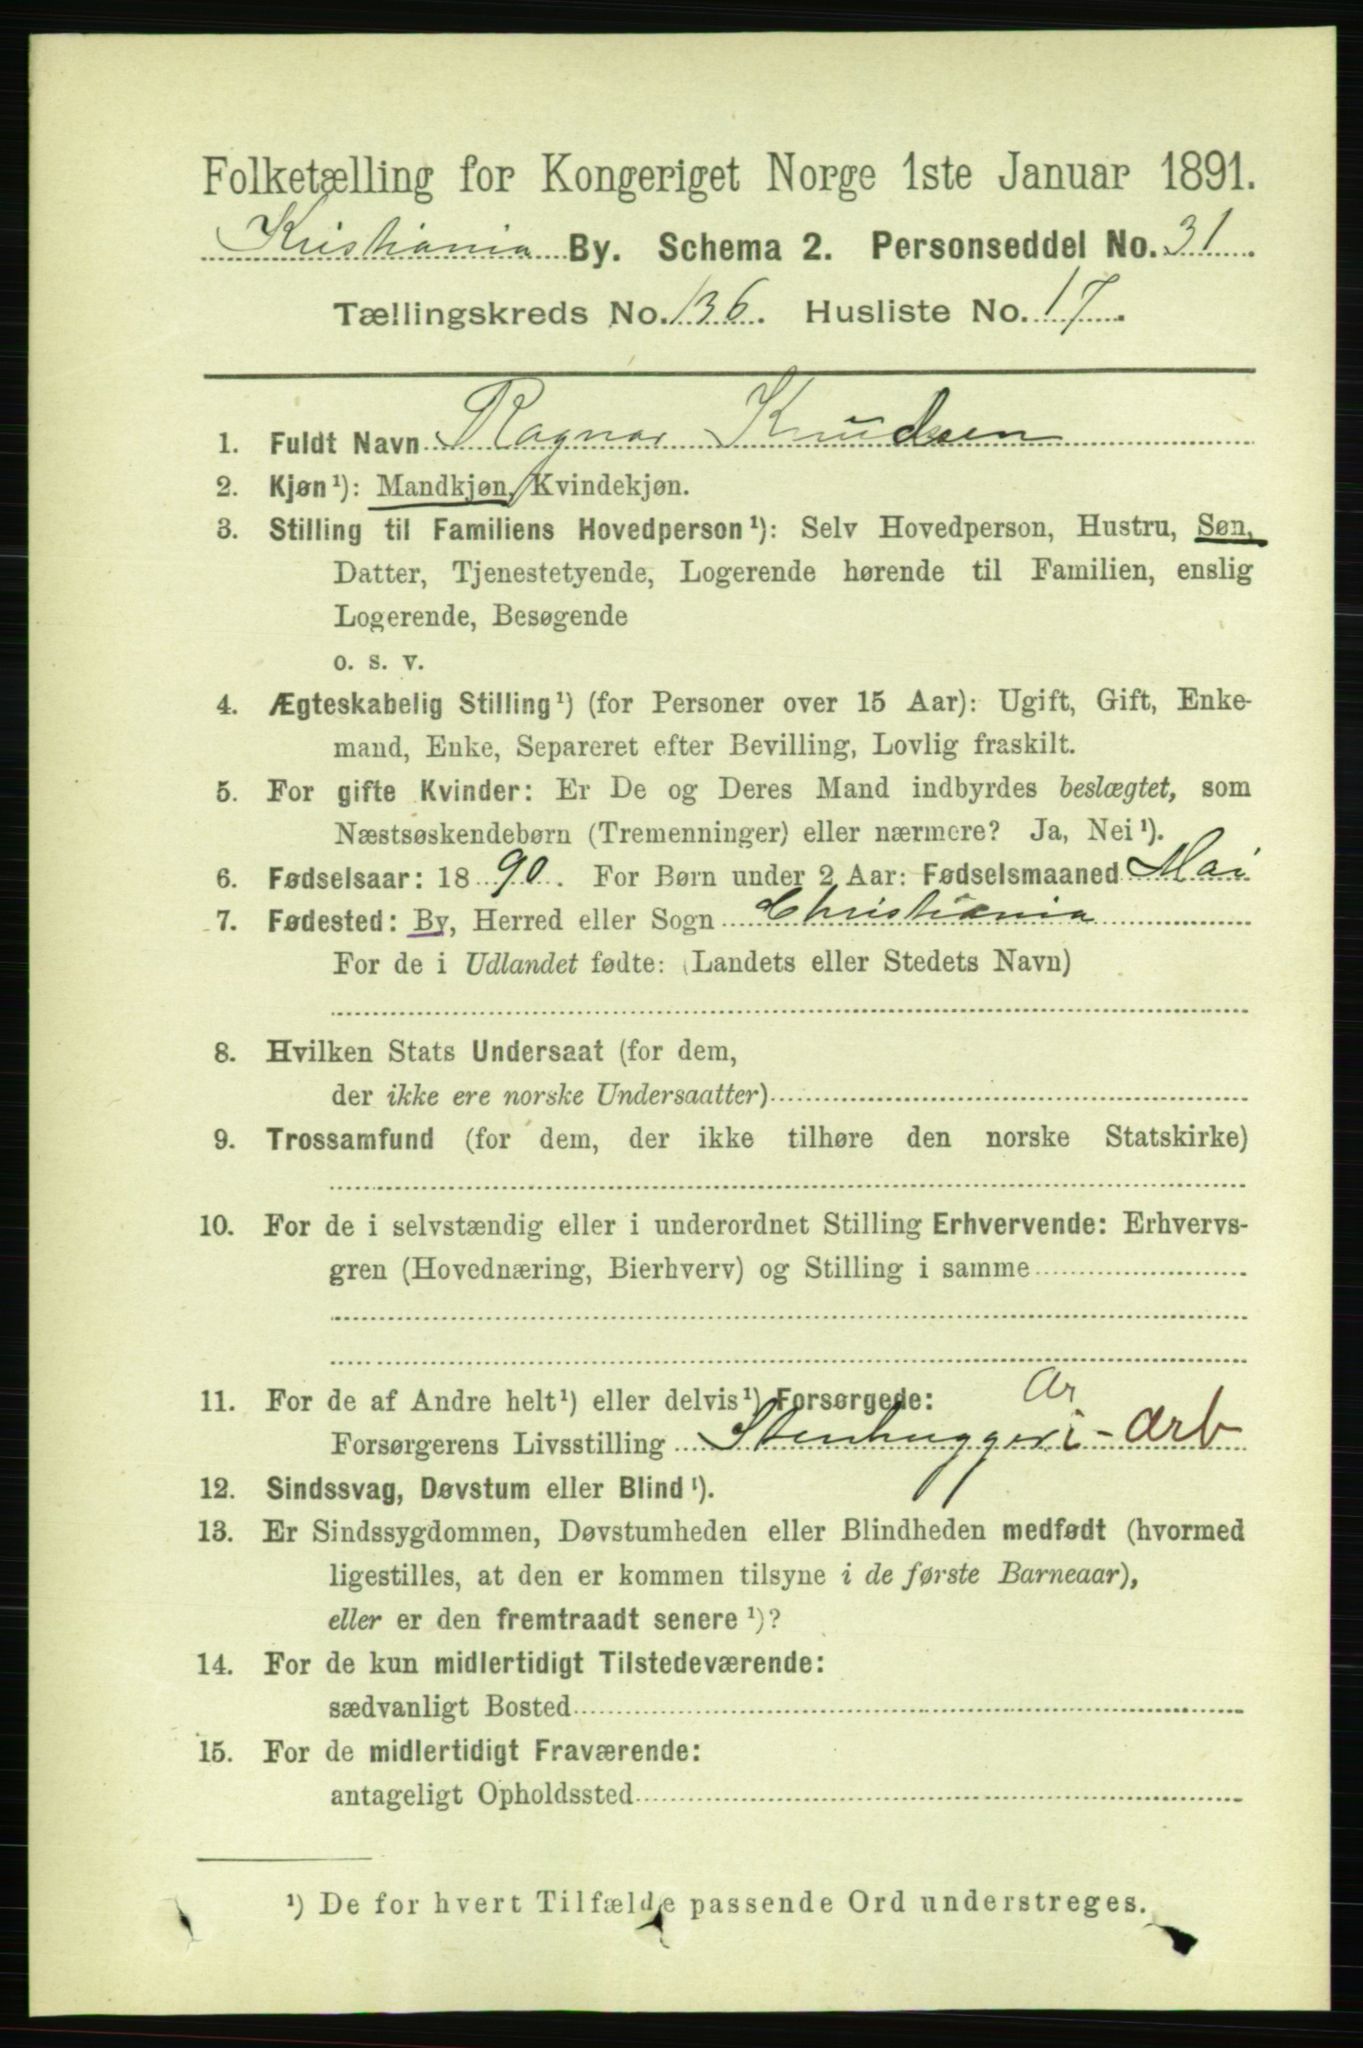 Folketælling for Kongeriget Norge 1ste Januar 1891.
Kristiania By. Schema 2. Personseddel No. 31.
Tællingskreds No. 136. Husliste No. 17.
1. Fuldt Navn Ragnar Knudsen
2. Kjøn¹): Mandkjøn, Kvindekjøn.
3. Stilling til Familiens Hovedperson¹): Selv Hovedperson, Hustru, Søn,
Datter, Tjenestetyende, Logerende hørende til Familien, enslig
Logerende, Besøgende
o. s. v.
4. Ægteskabelig Stilling¹) (for Personer over 15 Aar): Ugift, Gift, Enke-
mand, Enke, Separeret efter Bevilling, Lovlig fraskilt.
5. For gifte Kvinder: Er De og Deres Mand indbyrdes beslægtet, som
Næstsøskendebørn (Tremenninger) eller nærmere? Ja, Nei¹).
6. Fødselsaar: 1890. For Børn under 2 Aar: Fødselsmaaned Mai
7. Fødested: By, Herred eller Sogn Christiania
For de i Udlandet fødte: (Landets eller Stedets Navn)
8. Hvilken Stats Undersaat (for dem,
der ikke ere norske Undersaatter)
9. Trossamfund (for dem, der ikke tilhøre den norske Statskirke)
10. For de i selvstændig eller i underordnet Stilling Erhvervende: Erhvervs-
gren (Hovednæring, Bierhverv) og Stilling i samme
11. For de af Andre helt¹) eller delvis¹) Forsørgede: Ar
Forsørgerens Livsstilling Stenhuggeri-arb
12. Sindssvag, Døvstum eller Blind¹).
13. Er Sindssygdommen, Døvstumheden eller Blindheden medfødt (hvormed
ligestilles, at den er kommen tilsyne i de første Barneaar),
eller er den fremtraadt senere¹)?
14. For de kun midlertidigt Tilstedeværende:
sædvanligt Bosted
15. For de midlertidigt Fraværende:
antageligt Opholdssted
¹) De for hvert Tilfælde passende Ord understreges.